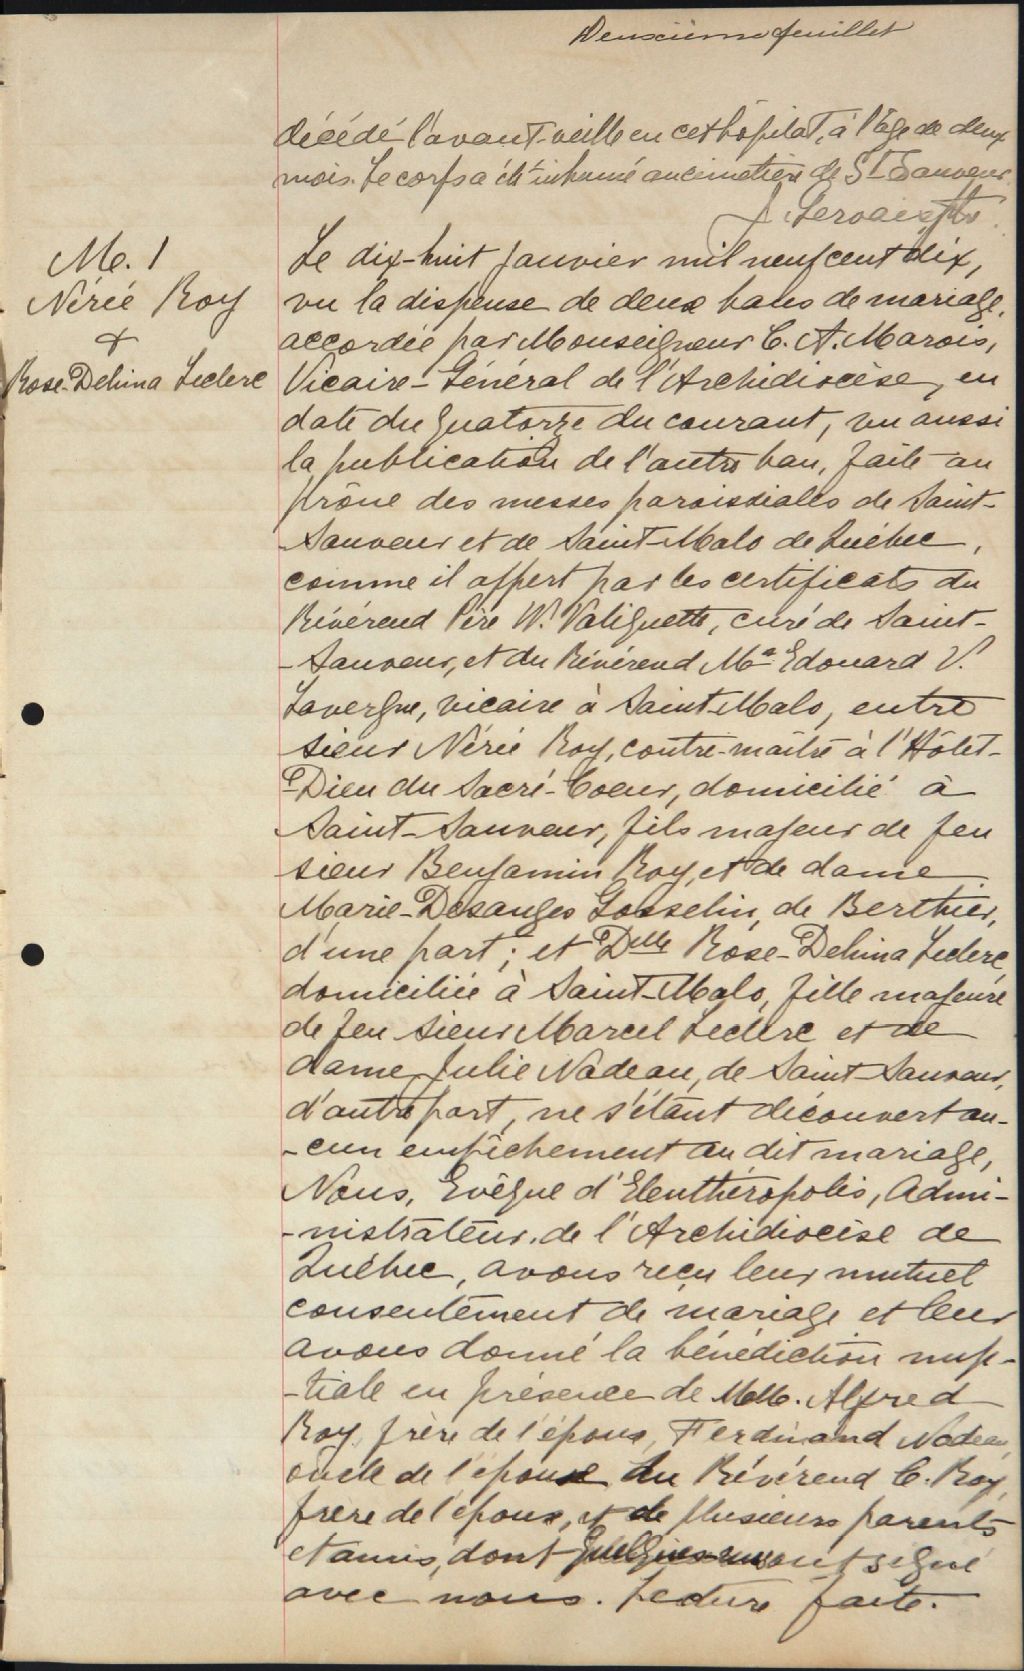 Deuxième feuillet
décédé l'avant-veille en cet hôpital, à l'âge de deux
mois. Le corps a été inhumé au cimetière de St-Sauveur.
J. Gervais, ptre
M. 1
Nérée Roy
+
Rose-Delima Leclerc
Le dix-huit janvier mil neuf cent dix,
vu la dispense de deux bans de mariage,
accordée par Monseigneur C. A. Marois,
Vicaire-Général de l'Archidiocèse, en
date du quatorze du courant, vu aussi
la publication de l'autre ban, faite au
prône des messes paroissiales de Saint-
Sauveur et de Saint-Malo de Québec,
comme il appert par les certificats du
Révérend Père W. Valiquette, curé de Saint-
-Sauveur, et du Révérend Mr Edouard V.
Lavergne, vicaire à Saint-Malo, entre
sieur Nérée Roy, contre-maître à l'Hôtel-
-Dieu du Sacré-Coeur, domicilié à
Saint-Sauveur, fils majeur de feu
sieur Benjamin Roy, et de dame
Marie-Desanges Gosselin, de Berthier,
d'une part; et Delle Rose-Delima Leclerc,
domiciliée à Saint-Malo, fille majeure
de feu sieur Marcel Leclerc et de
dame Julie Nadeau, de Saint-Sauveur,
d'autre part, ne s'étant découvert au-
-cun empêchement au dit mariage,
Nous, Evêque d'Eleuthéropolis, Admi-
-nistrateur de l'Archidiocèse de
Québec, avons reçu leur mutuel
consentement de mariage et leur
avons donné la bénédiction nup-
-tiale en présence de MM. Alfred
Roy, frère de l'époux, Ferdinand Nadeau,
oncle de l'épouse du Révérend C. Roy,
frère de l'époux, et de plusieurs parents
et amis, dont quelques-uns ont signé
avec nous. Lecture faite.